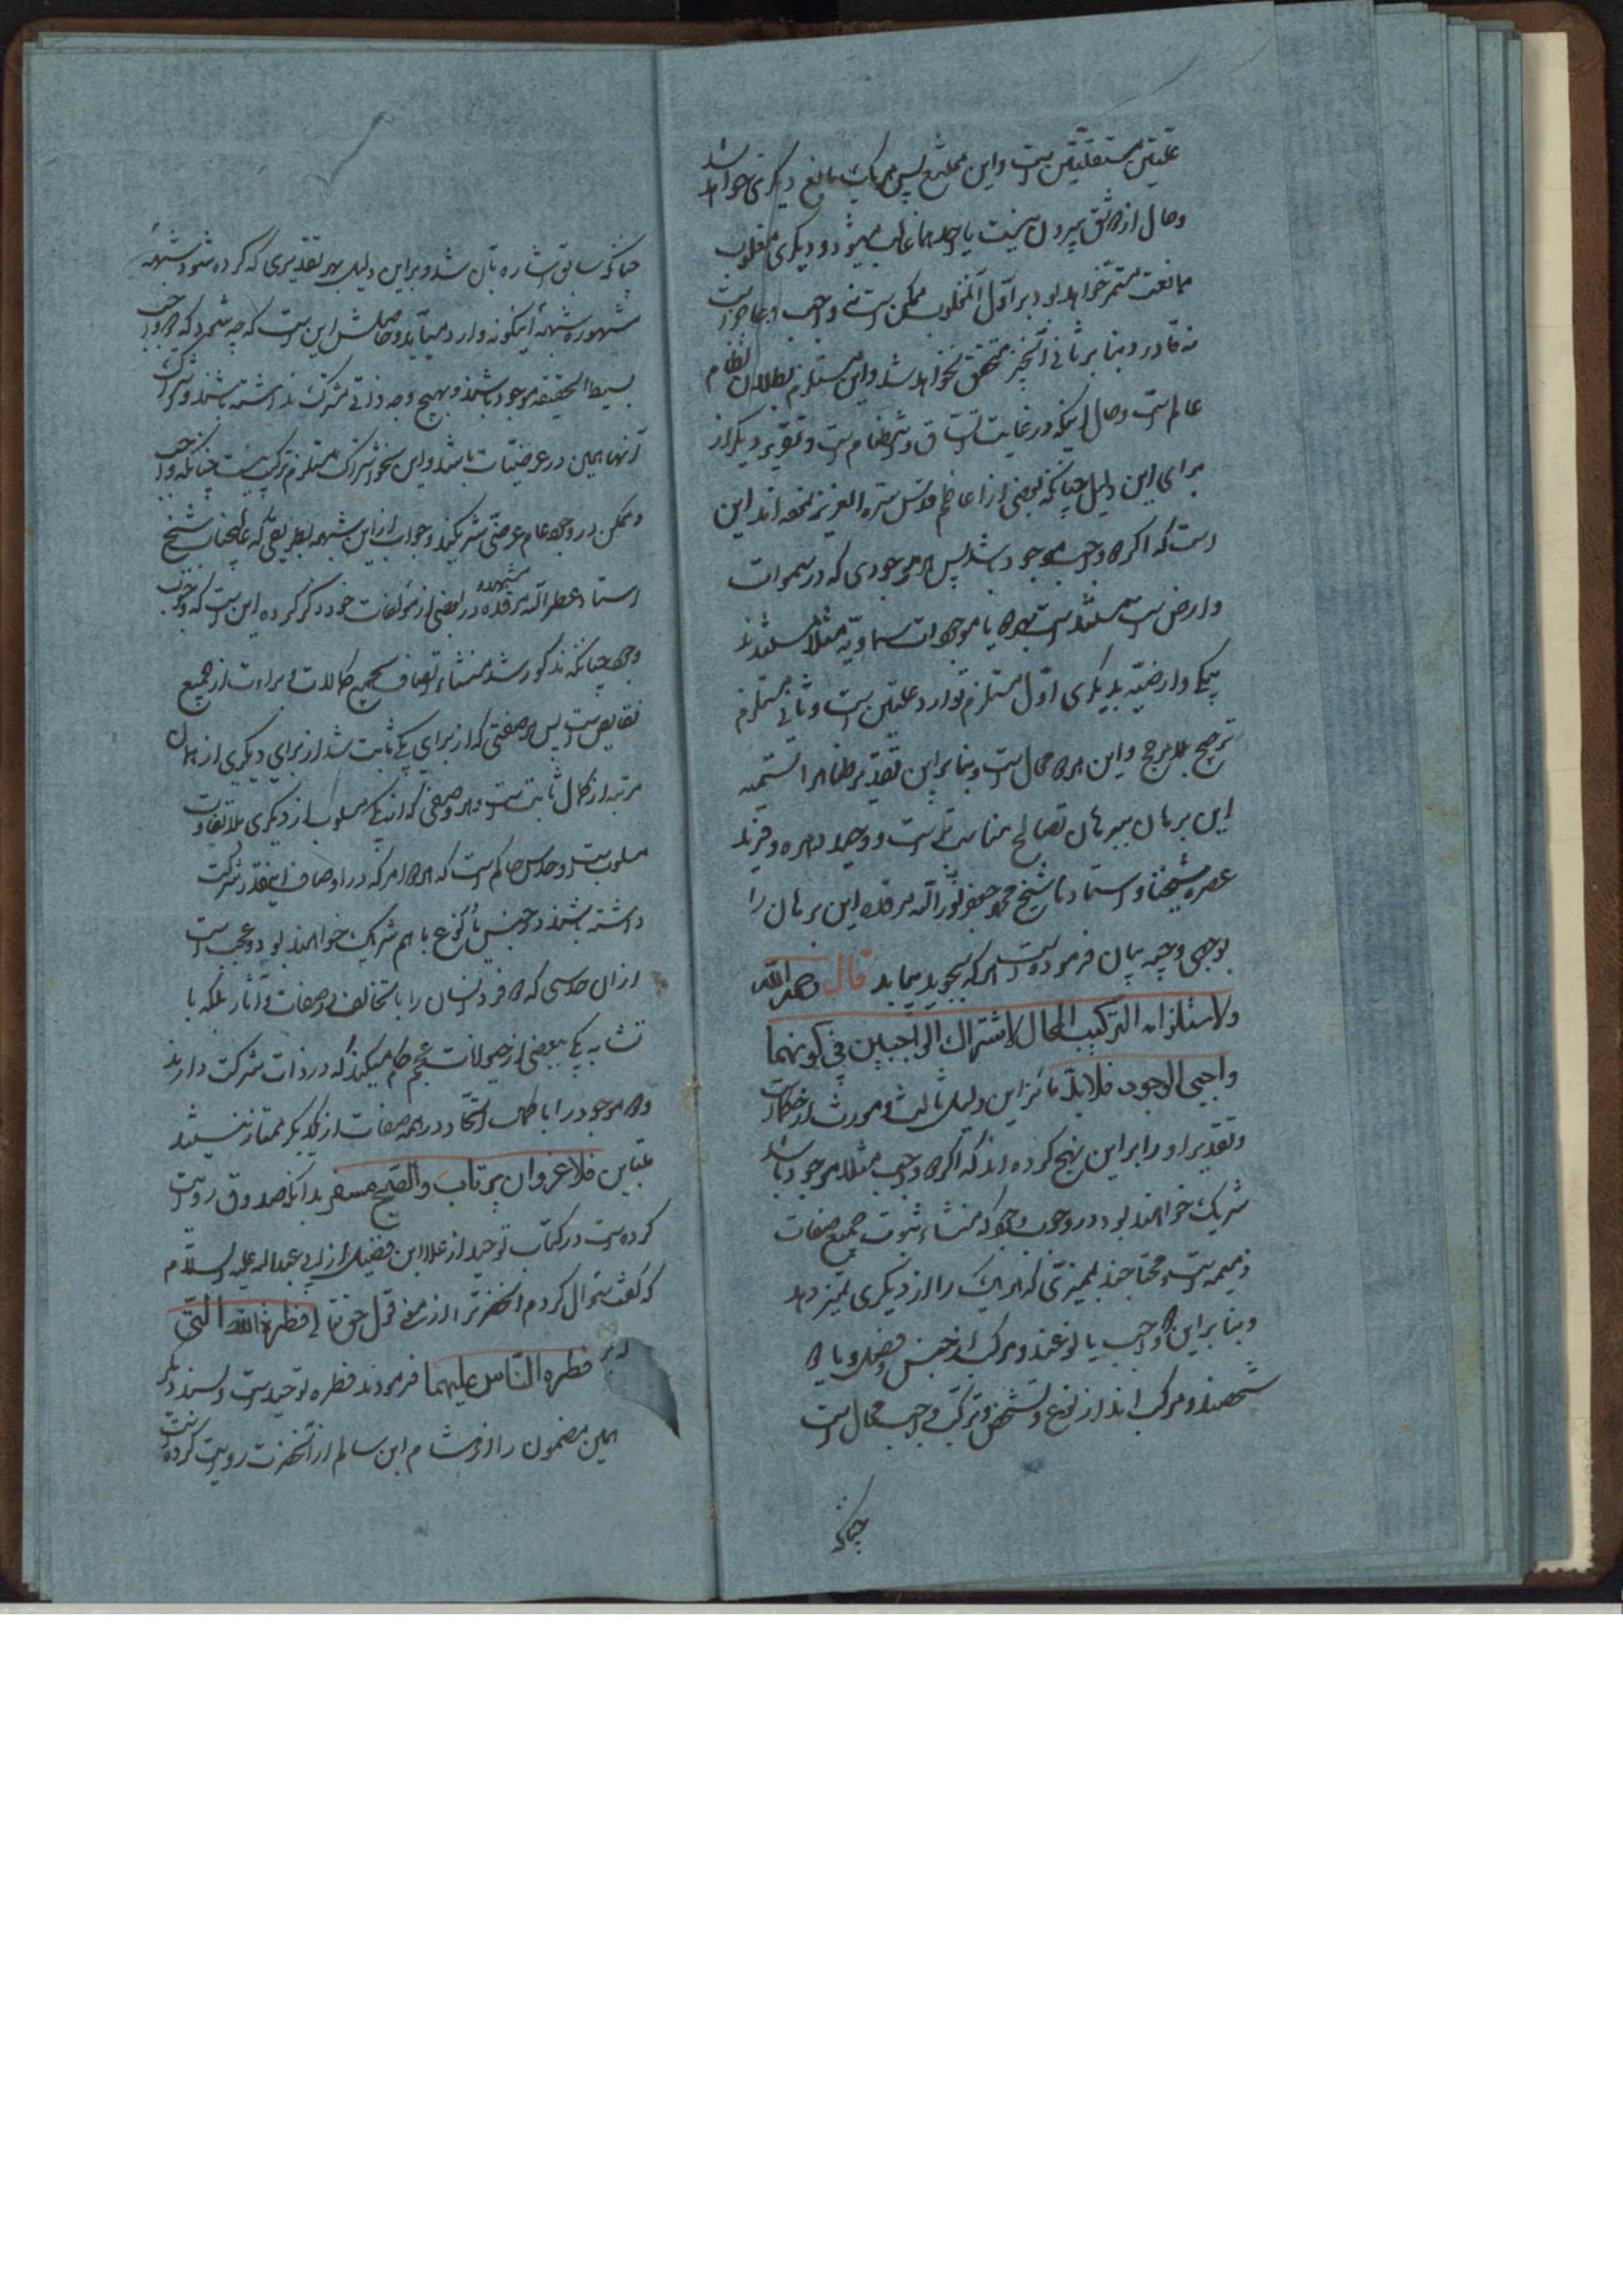 علتین مستقلتین است و این ممتنع پس هر یک مانع دیگری خواهد شد
و حال از دو شق بیرون نیست یا احدهما غالب میشود و دیگری مغلوب
ممانعت مستمر خواهد بود بر اول آن مغلوب ممکن است نه واجب و عاجز است
نه قادر و بنا بر ثانی آنچیز متحقق نخواهد شد و این مستلزم بطلان نظام
عالم است و حال اینکه در غایت اتساق و انتظام است و تقریر دیگر از
برای این دلیل چنانکه بعضی از اعاظم قدس سره العزیز نموده اند این
است که اگر دو واجب موجود باشد پس هر موجودی که در سموات
و ارض است مستند است بهر دو یا موجودات سماویه مثلا مستندند
بیکی و ارضیه بدیگری اول مستلزم توارد علتین است و ثانی مستلزم
ترجیح بلا مرجح و این هر دو محال است و بنا بر این تقدیر ظاهرا تسمیه
این برهان ببرهان تمانع مناسب است و وحید دهره و فرید
عصره شیخنا و استادنا شیخ محمد جعفر نور الله مرقده این برهان را
بوجهی وجیه بیان فرموده است هر که بجوید بیابد قال رحمه الله
ولاستلزامه التركيب المحال لاشتراك الواجبين في كونهما
واجبي الوجود فلا بد مائز این دلیل ثالث و موروث از حکما است
و تقدیر او را بر این نهج کرده اند که اگر دو واجب مثلا موجود باشد
شریک خواهند بود در وجوب وجود که منشاء ثبوت جمیع صفات
ذمیمه است و محتاجند بممیزی که هر یک را از دیگری تمیز دهد
و بنا بر این دو واجب یا نوعند و مرکب از جنس و فصل و یا دو
شخصند و مرکب اند از نوع و تشخص و ترکب واجب محال است
چنانکه
چنانکه سابق اشاره بآن شد و بر این دلیل بهر تقدیری که کرده شود شبههٔ
مشهوره شبههٔ اینکونه وارد میآید و حاصلش این است که چه میشود که دو واجب
بسیط الحقیقه موجود باشند و بهیچ وجه ذاتی شرکت نداشته باشند و شرکت
آنها همین در عرضیات باشد و این نحو اشتراک مستلزم ترکیب نیست چنانکه واجب
و ممکن در وجود عام عرضی شریکند و جواب از این شبهه بطریقی که عالیجناب شیخ
استاد عطر الله مرقده مشهده در بعضی از مؤلفات خود ذکر کرده این است که وجوب
وجود چنانکه مذکور شد منشاء اتصاف بجمیع کمالات و براءت از جمیع
نقایص است پس هر صفتی که از برای یکی ثابت شد از برای دیگری از همان
مرتبه از کمال ثابت است و هر وصفی که از یکی مسلوب از دیگری بلا تفاوت
مسلوب است و حدس حاکم است که هر دو امر که در اوصاف اینقدر شرکت
داشته باشند در جنس یا نوع با هم شریک خواهند بود و عجب است
از آن حدسی که دو فرد انسان را با تخالف در صفات و آثار بلکه با
تشابه یکی ببعضی از حیوانات عجم حکم میکند که در ذات شرکت دارند
و دو موجود را با کمال اتحاد در همه صفات از یکدیگر ممتاز نیستند
متباین فلا غرو ان یرتاب والصبح مسفر بدانکه صدوق روایت
کرده است در کتاب توحید از علا ابن فضیل از ابی عبدالله علیه السلام
که گفت سؤال کردم آنحضرت را از معنی قول حق تعالی فطرة الله التی
فطره الناس علیها فرمودند فطره توحید است و بسند دیگر
همین مضمون را از هشام ابن سالم از آنحضرت روایت کرده است